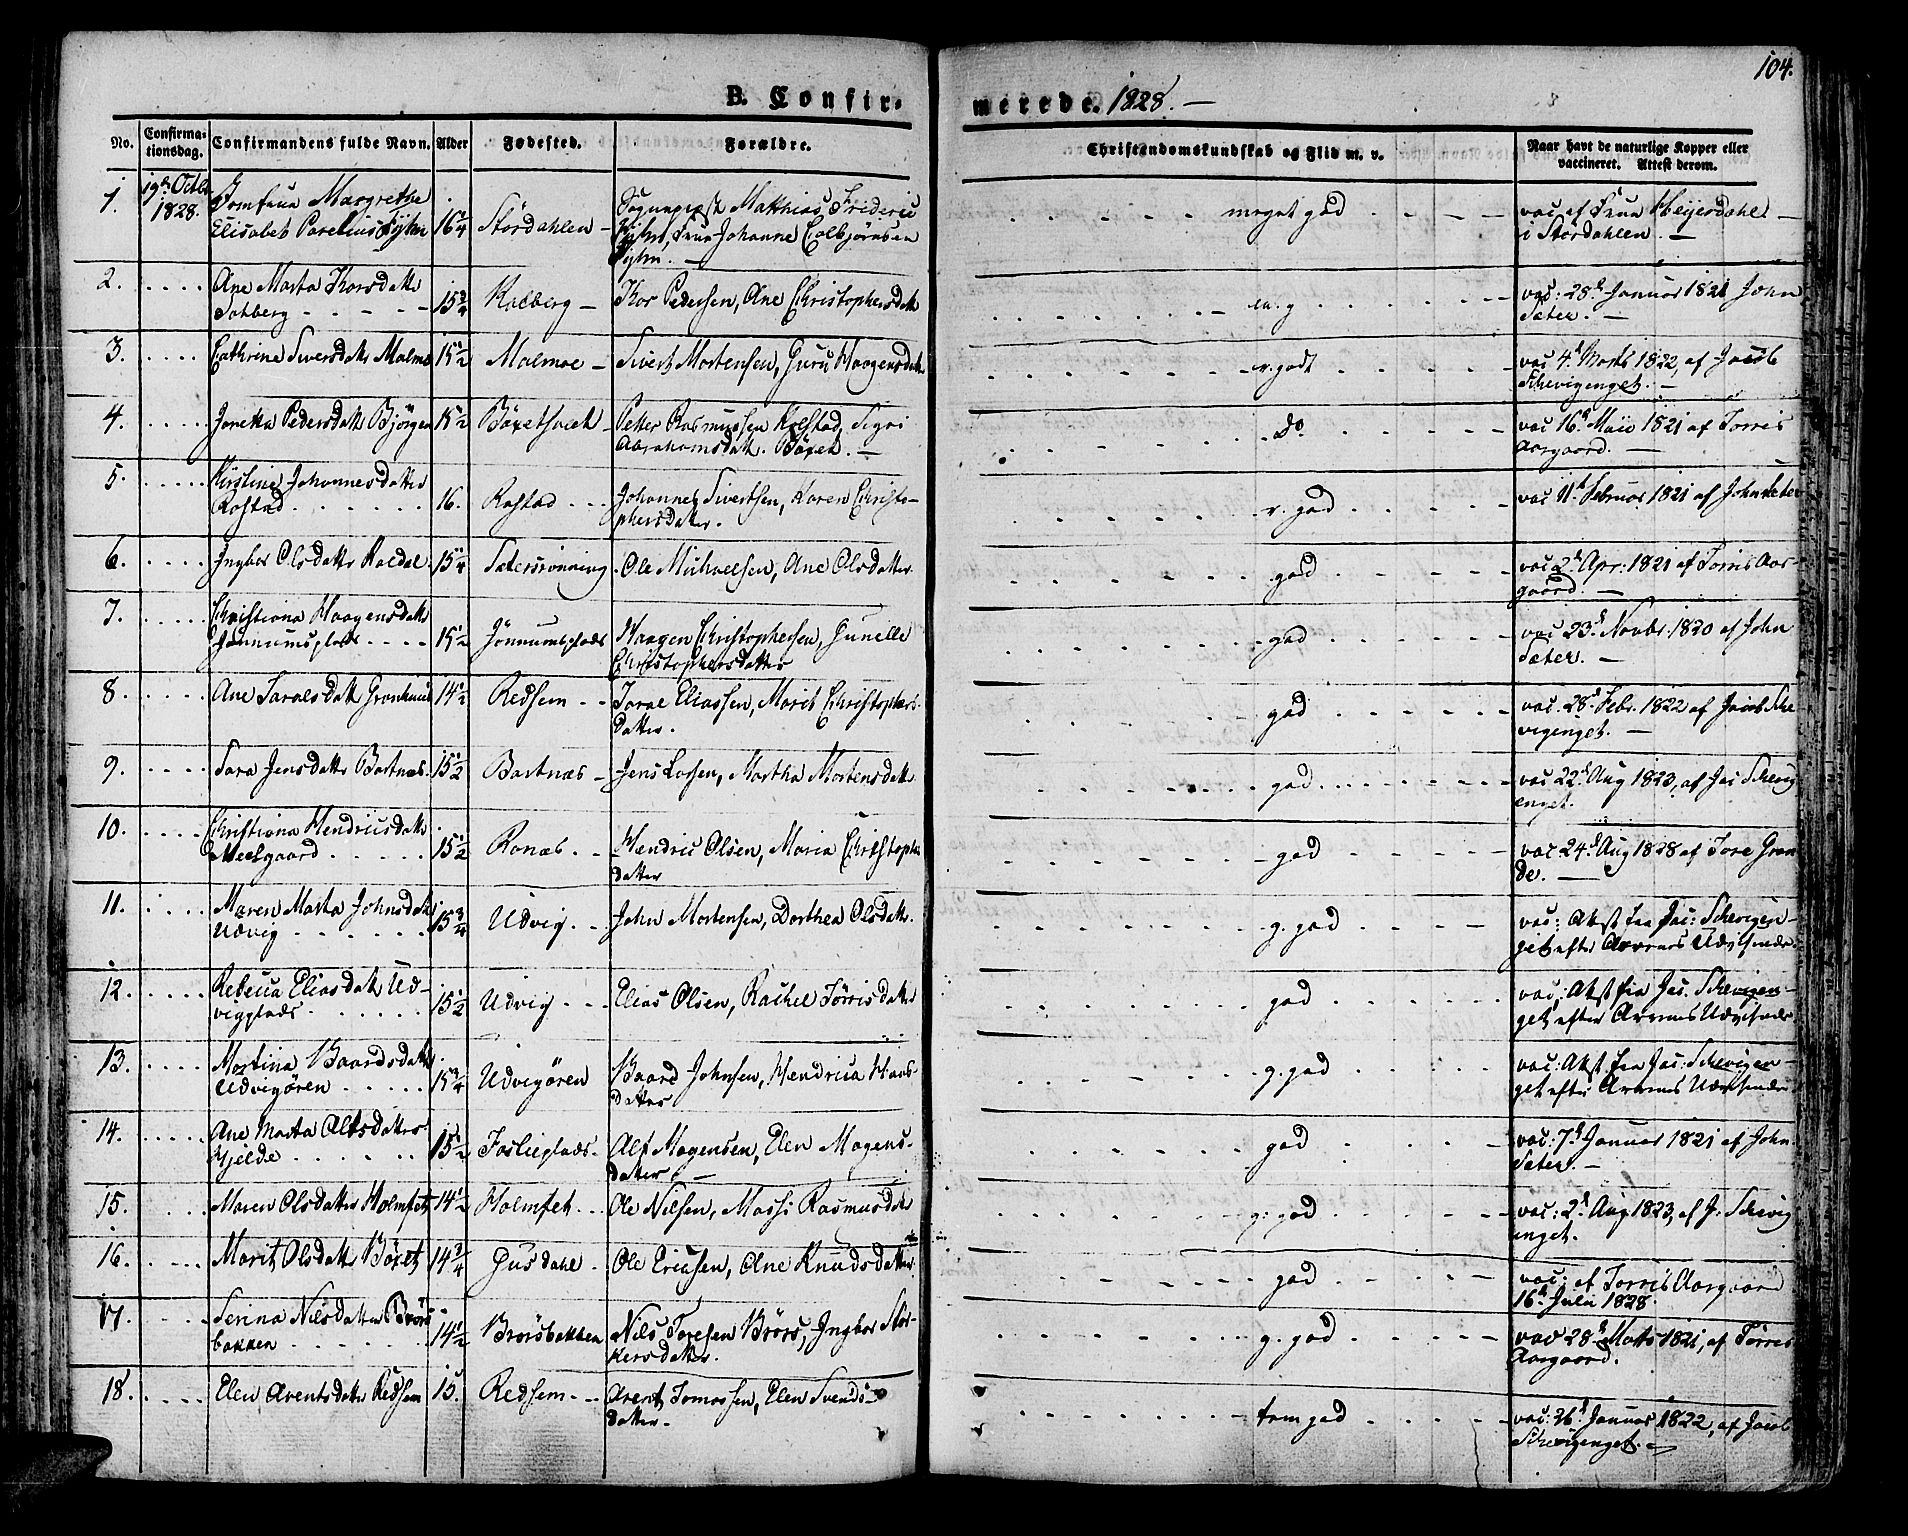 104.
B. Confir-
merede. 1828. —
No.
Confirma-
tionsdag.
Confirmandens fulde Navn.
Alder
Fødested.
Forældre.
Christendomskundskab og Flid m. v.
Naar havt de naturlige Kopper eller
vaccineret. Attest derom.
1. 19de Octbr 1828. Jomfrue Margrethe
Elisabet Parelius 16 1/4 Stördahlen — Sognepræst Matthias Frideric
Frue Johanne Colbjørnsen
meget god vac. af Frue Heyerdahl —
i Stördahlen. —
2. Ane Marta Thorsdatt. 15 3/4 Kolberg — Thor Pedersen, Ane Christophersdatt.
m. g vac: 28d Januar 1821 John
Sæter. —
3. Cathrine Siversdatt. Malmo 15 1/2 Malmoe — Sivert Mortensen, Guru Haagensdatt.
r. godt vac 4d Marts 1822, af Jacob
Schevigenget. —
4. Jonetta Pedersdatt. Bjørgen 15 1/2 Petter Rasmussen Kolstad, Sigri
Abrahamsdatt. Böxet. —
do vac 16d Maii 1821 af Torris
Aargaard. —
5. Kirstine Johannesdatter
Rostad 16. Rostad Johannes Sivertsen, Karen Christo-
phersdatter.
r. god vac 11d Februar 1821 af John Sæter
6. Ingbor Olsdatter 15 1/4 Sætersrönning Ole Michaelsen, Ane Olsdatter
god vac 2d Apr: 1821 af Torris Aar-
gaard. —
7. Christiana Haagensdatt.
Jönnumsplads 15 1/2 Jönnumsplads Haagen Christophersen, Gunille
Christophersdatter
god vac 23d Novbr. 1820 af John
Sæter. —
8. Ane Israelsdatt. 14 1/2 Redsem Israe Eliassen, Marit Christophers-
datter.
god vac. 28d Febr. 1822 af Jacob Sche-
vigenget. —
9. Sara Jensdatter Bartnæs. 15 1/2 Bartnæs — Jens Larsen, Martha Mortensdatt.
god vac: 22d Aug 1823, af Jac Schevig
enget.
10. Christiana Hendricsdatt.
Meelgaard 15 1/2 Ronæs Hendric Olsen, Maria Christophe
datter
god vac 24d Aug 1828 af Tore Gran-
de. —
11. Maren Marta Johnsdatt.
Udvig 15 3/4 Udvig John Mortensen, Dorthea Olsdatt.
g. god vac: Attest fra Jac: Schevigen-
get efter
12. Rebecca Eliasdatt. Ud-
vigplads 15 1/2 Udvig Elias Olsen, Rachel Törrisdatter
god vac: Attest fra Jac. Schevigen-
get efter
13. Martina Baardsdatt.
Udvigören 15 3/4 Udvigören Baard Johnsen, Hendrica Haars-
datter
g. god vac: Attest fra Jac: Schevigen-
get efter
14. Ane Marta Alfsdatter
Hjelde 15 1/2 Foslieplads Alf Mogensen, Elen Mogens-
datter. —
god vac: 7d Januar 1821 af John
Sæter. —
15. Maren Olsdatter Holmset 14 1/2 Holmset Ole Nilsen, Massi Rasmusdatt.
g. god vac: 2d Aug 1823, af J. Schevig
enget.
16. Marit Olsdatt. Böxet 14 3/4 Gusdahl Ole Ericsen, Ane Knudsdatter
god vac: af Torris Aargaard
16d Julii 1828.
17. Serina Nilsdatter Brörs
bakken 14 1/2 Brörsbakken Nils Toresen Brörs, Ingbor Stor-
kersdatter.
g. god vac 28d Marts 1821, af Törris
Aargaard.
18. Elen Arentsdatter Redsem 15. Redsem Arent Tomassen, Elen Svends-
datter.
tem god vac: 26d Januar 1822, af Jacob
Schevigenget. —